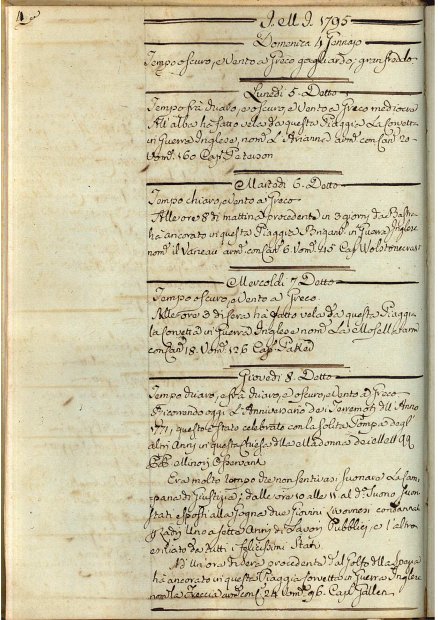 J.M.J. 1795
Domenica 4 Gennaio
Tempo oscuro, e Vento a Greco gagliardo, gran freddo
Lunedi 5. Detto
Tempo frà chiaro, e oscuro, e Vento a Greco mediocre
All'alba ha fatto vela da questa Piaggia La Corvetta
in Guerra Inglese, nom. L'Arianna arm. con Can. 20
Vom. 160 Cap. Paterson
Martedi 6. Detto
Tempo chiaro, e Vento a Greco
Alle ore 8 di mattina procedente in 3 giorni da Bastia
hà ancorato in questa Piaggia Brigant. in Guerra Inglese
nom. il Vaneau arm. con Can. 6. Vom. 45 Cap.
Mercoldi 7 Detto
Tempo oscuro, e Vento a Greco
Alle ore 3 di sera hà fatto vela da questa Piaggia
la Corvetta in Guerra Inglese nom. La Moselle arm.
con Can. 18. Vom. 126 Cap.
Giovedi 8. Detto
Tempo chiaro, e frà chiaro, e oscuro, e Vento a Greco
Ricorrendo oggi L'Anniversario de Terremoti dell'Anno
questo è stato celebrato con la solita Pompa degl'
altri Anni in questa Chiesa della Madonna de
PP. Minori Osservanti
Era molto tempo che non sentivasi suonare La Cam
pana di Giustizia; dalle ore 10 alle 11 al di Suono furon
stati esposti alla Gogna due Giovini Livornesi condannati
Uno a sette Anni di Lavori Pubblici, e l'altro
esiliato da tutti i felicissimi Stati.
Ad un ora di sera procedente dal Golfo della Spezia
hà ancorato in questa Piaggia Corvetta in Guerra Inglese
nom. La Freccia arm. con Can. 24 Vom. 96. Cap.